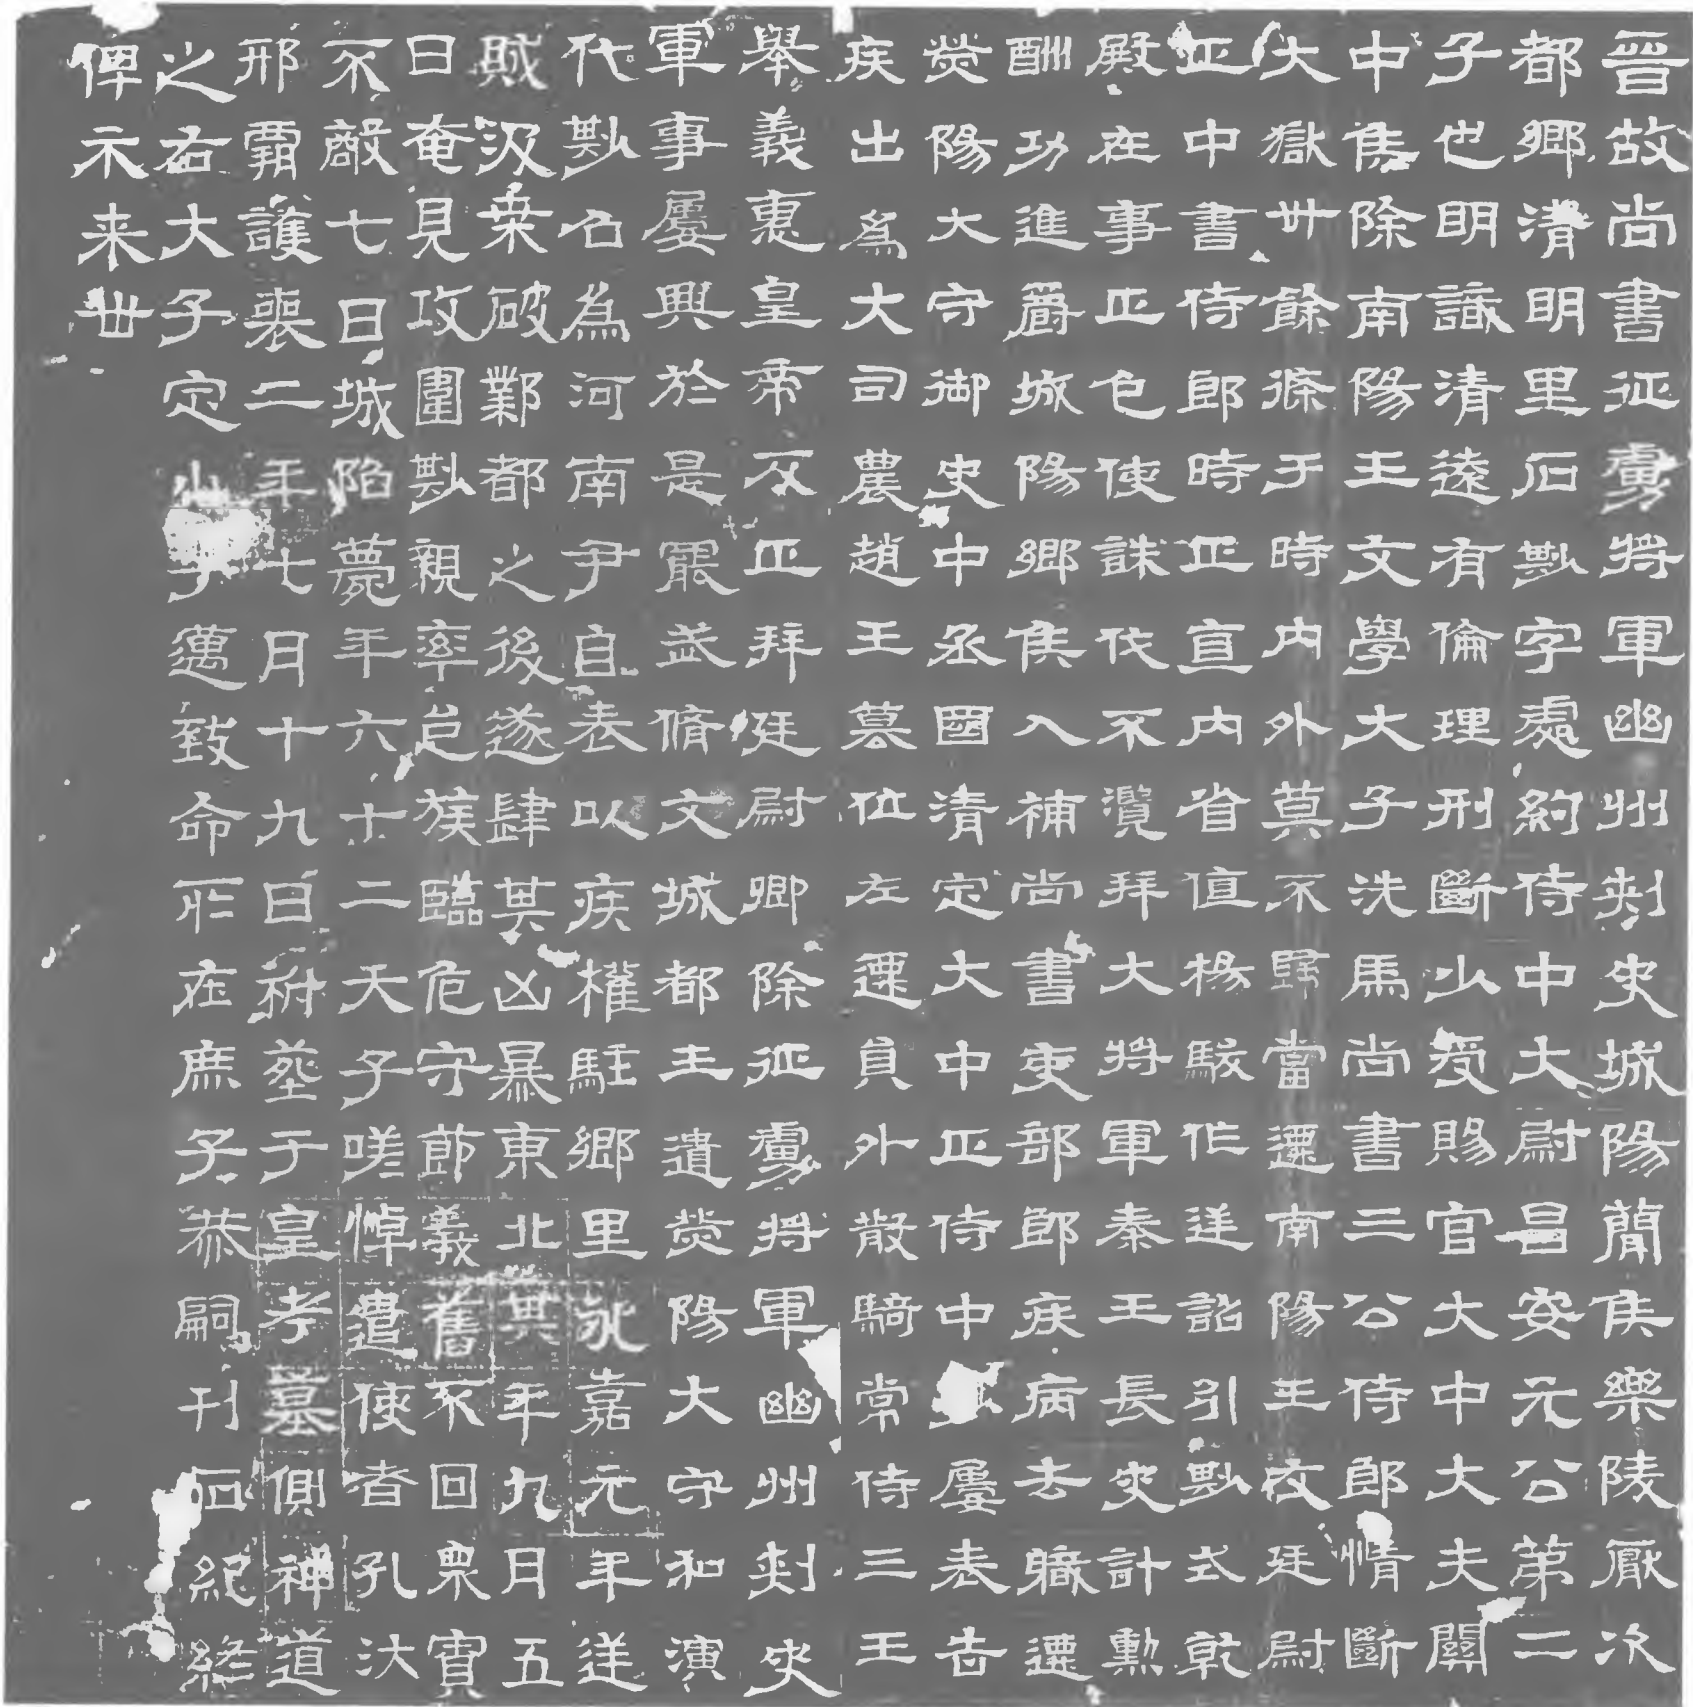 晉故尚書征虜將軍幽州刾史城陽蕑侯樂陵厭次
都鄉清明里石尠字處約侍中大尉昌安元公第二
子也明識清遠有倫理刑斷少受賜官大中大夫關
中侯除南陽王文學大子洗馬尚書三公侍郎情斷
大獄卅餘條于時內外莫不歸當遷南陽王友廷尉
正中書侍郎時正直內省值楊駿作逆詔引尠式乾
殿在事正色使誅伐不濫拜大將軍秦王長史計勳
酬功進爵城陽鄉侯入補尚書吏部郎疾病去職遷
熒陽大守御史中丞國清定大中正侍中屢表告
疾出為大司農趙王篡位左遷員外散騎常侍三王
舉義惠皇帝反正拜廷尉卿除征虜將軍幽州刾史
軍事屢興於是罷武脩文城都王遣熒陽大守和演
代尠召為河南尹自表以疾權駐鄉里永嘉元年逆
賊汲桑破鄴都之後遂肆其凶暴東北其年九月五
日奄見攻圍尠親率邑族臨危守節義舊不回眾寡
不敵七日城陷薨年六十二天子嗟悼遣使者孔汏
邢霸護喪二年七月十九日祔葬于皇考墓側神道
之右大子定小子邁致命所在庶子恭嗣刊石紀終
俾示来世